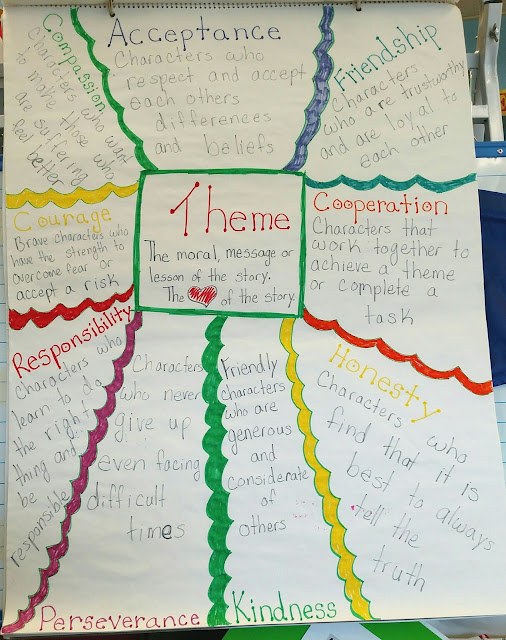 Compassion
Characters who want
to make those who
are suffering
feel better
Acceptance
Characters who
respect and accept
each others
differences
and beliefs
Friendship
Characters
who are trustworthy
and are loyal to
each other
Courage
Brave characters who
have the strength to
overcome fear or
accept a risk
Theme
The moral, message or
lesson of the story.
The of the story.
Cooperation
Characters that
work together to
achieve a theme
or complete a
task
Responsibility
Characters who
learn to do
the right
thing and
be
responsible
Characters
who never
give up
even facing
difficult
times
Perseverance
Friendly
characters
who are
generous
and
considerate
of
others
Kindness
Honesty
Characters who
find that it is
best to always
tell the
truth